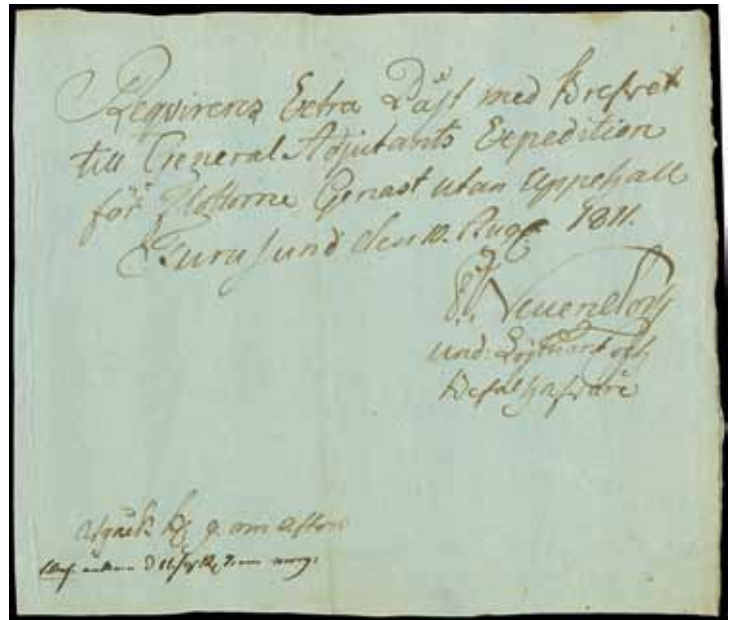 Reqvireras Extra Påst med Brefvet
till General Adjutants Expedition
för Flottorne Genast utan Uppehåll
Furusund den 10. Aug. 1811.
Neuendorff
und: Löjtnant och
Befälhafvare
Afgick Kl 9 om afton
d 11 Kl om morg: